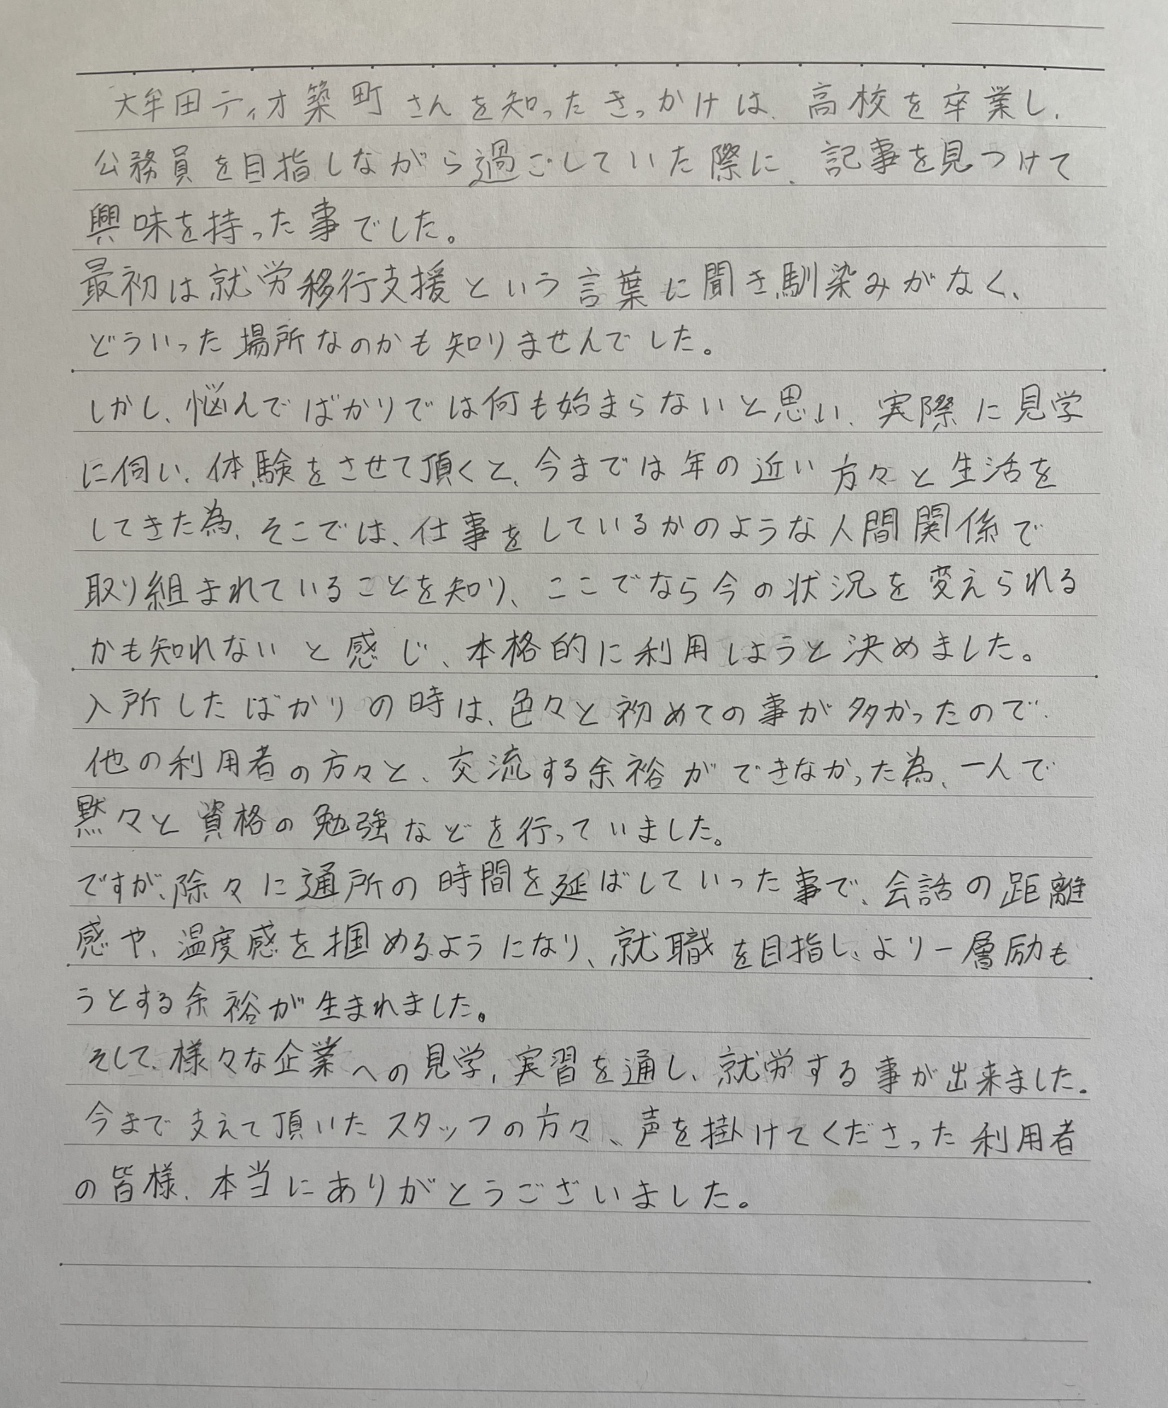 大牟田ティオ築町さんを知ったきっかけは、高校を卒業し、
公務員を目指しながら過ごしていた際に、記事を見つけて
興味を持った事でした。
最初は就労移行支援という言葉に聞き馴染みがなく、
どういった場所なのかも知りませんでした。
しかし、悩んでばかりでは何も始まらないと思い、実際に見学
に伺い、体験をさせて頂くと、今までは年の近い方々と生活を
してきた為、そこでは、仕事をしているかのような人間関係で
取り組まれていることを知り、ここでなら今の状況を変えられる
かも知れないと感じ、本格的に利用しようと決めました。
入所したばかりの時は、色々と初めての事が多かったので、
他の利用者の方々と、交流する余裕ができなかった為、一人で
黙々と資格の勉強などを行っていました。
ですが、除々に通所の時間を延ばしていった事で、会話の距離
感や、温度感を掴めるようになり、就職を目指し、より一層励も
うとする余裕が生まれました。
そして、様々な企業への見学、実習を通し、就労する事が出来ました。
今まで支えて頂いたスタッフの方々、声を掛けてくださった利用者
の皆様、本当にありがとうございました。